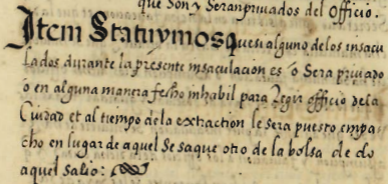 que son y seran privados del Officio.
Item Statuymos que si alguno de los insacu
lados durante la presente insaculacion es o sera privado
o en alguna manera fecho inhabil para Regir officio de la
Ciudad et al tiempo de la extraction le sera puesto empa
cho en lugar de aquel se saque otro de la bolsa de do
aquel salio: